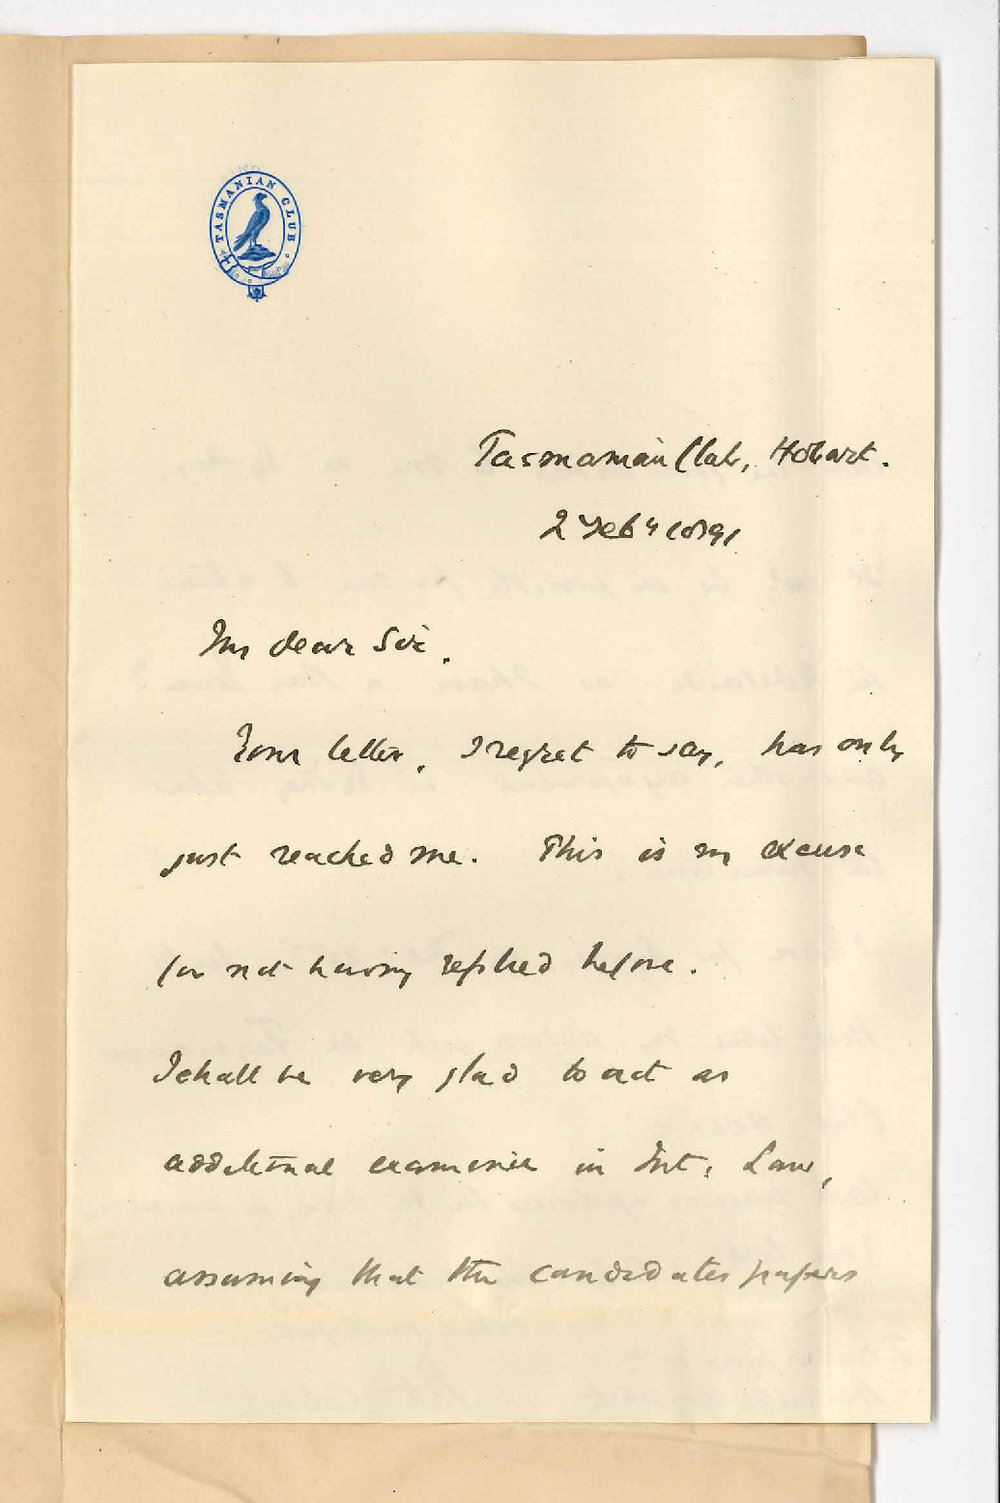 TASMANIAN CLUB
Tasmanian Club, Hobart.
2 Feby 1891
My dear Sir.
Your letter, I regret to say, has only
just reached me. This is my excuse
for not having replied before.
I shall be very glad to act as
additional examiner in Int: Law,
assuming that the candidates papers